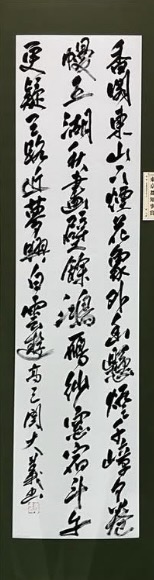 香閣東山下煙花象外幽懸燈千嶂夕卷
幔五湖秋畫壁餘鴻鴈紗窗宿斗牛
更疑天路近夢與白雲遊 高三関大義書